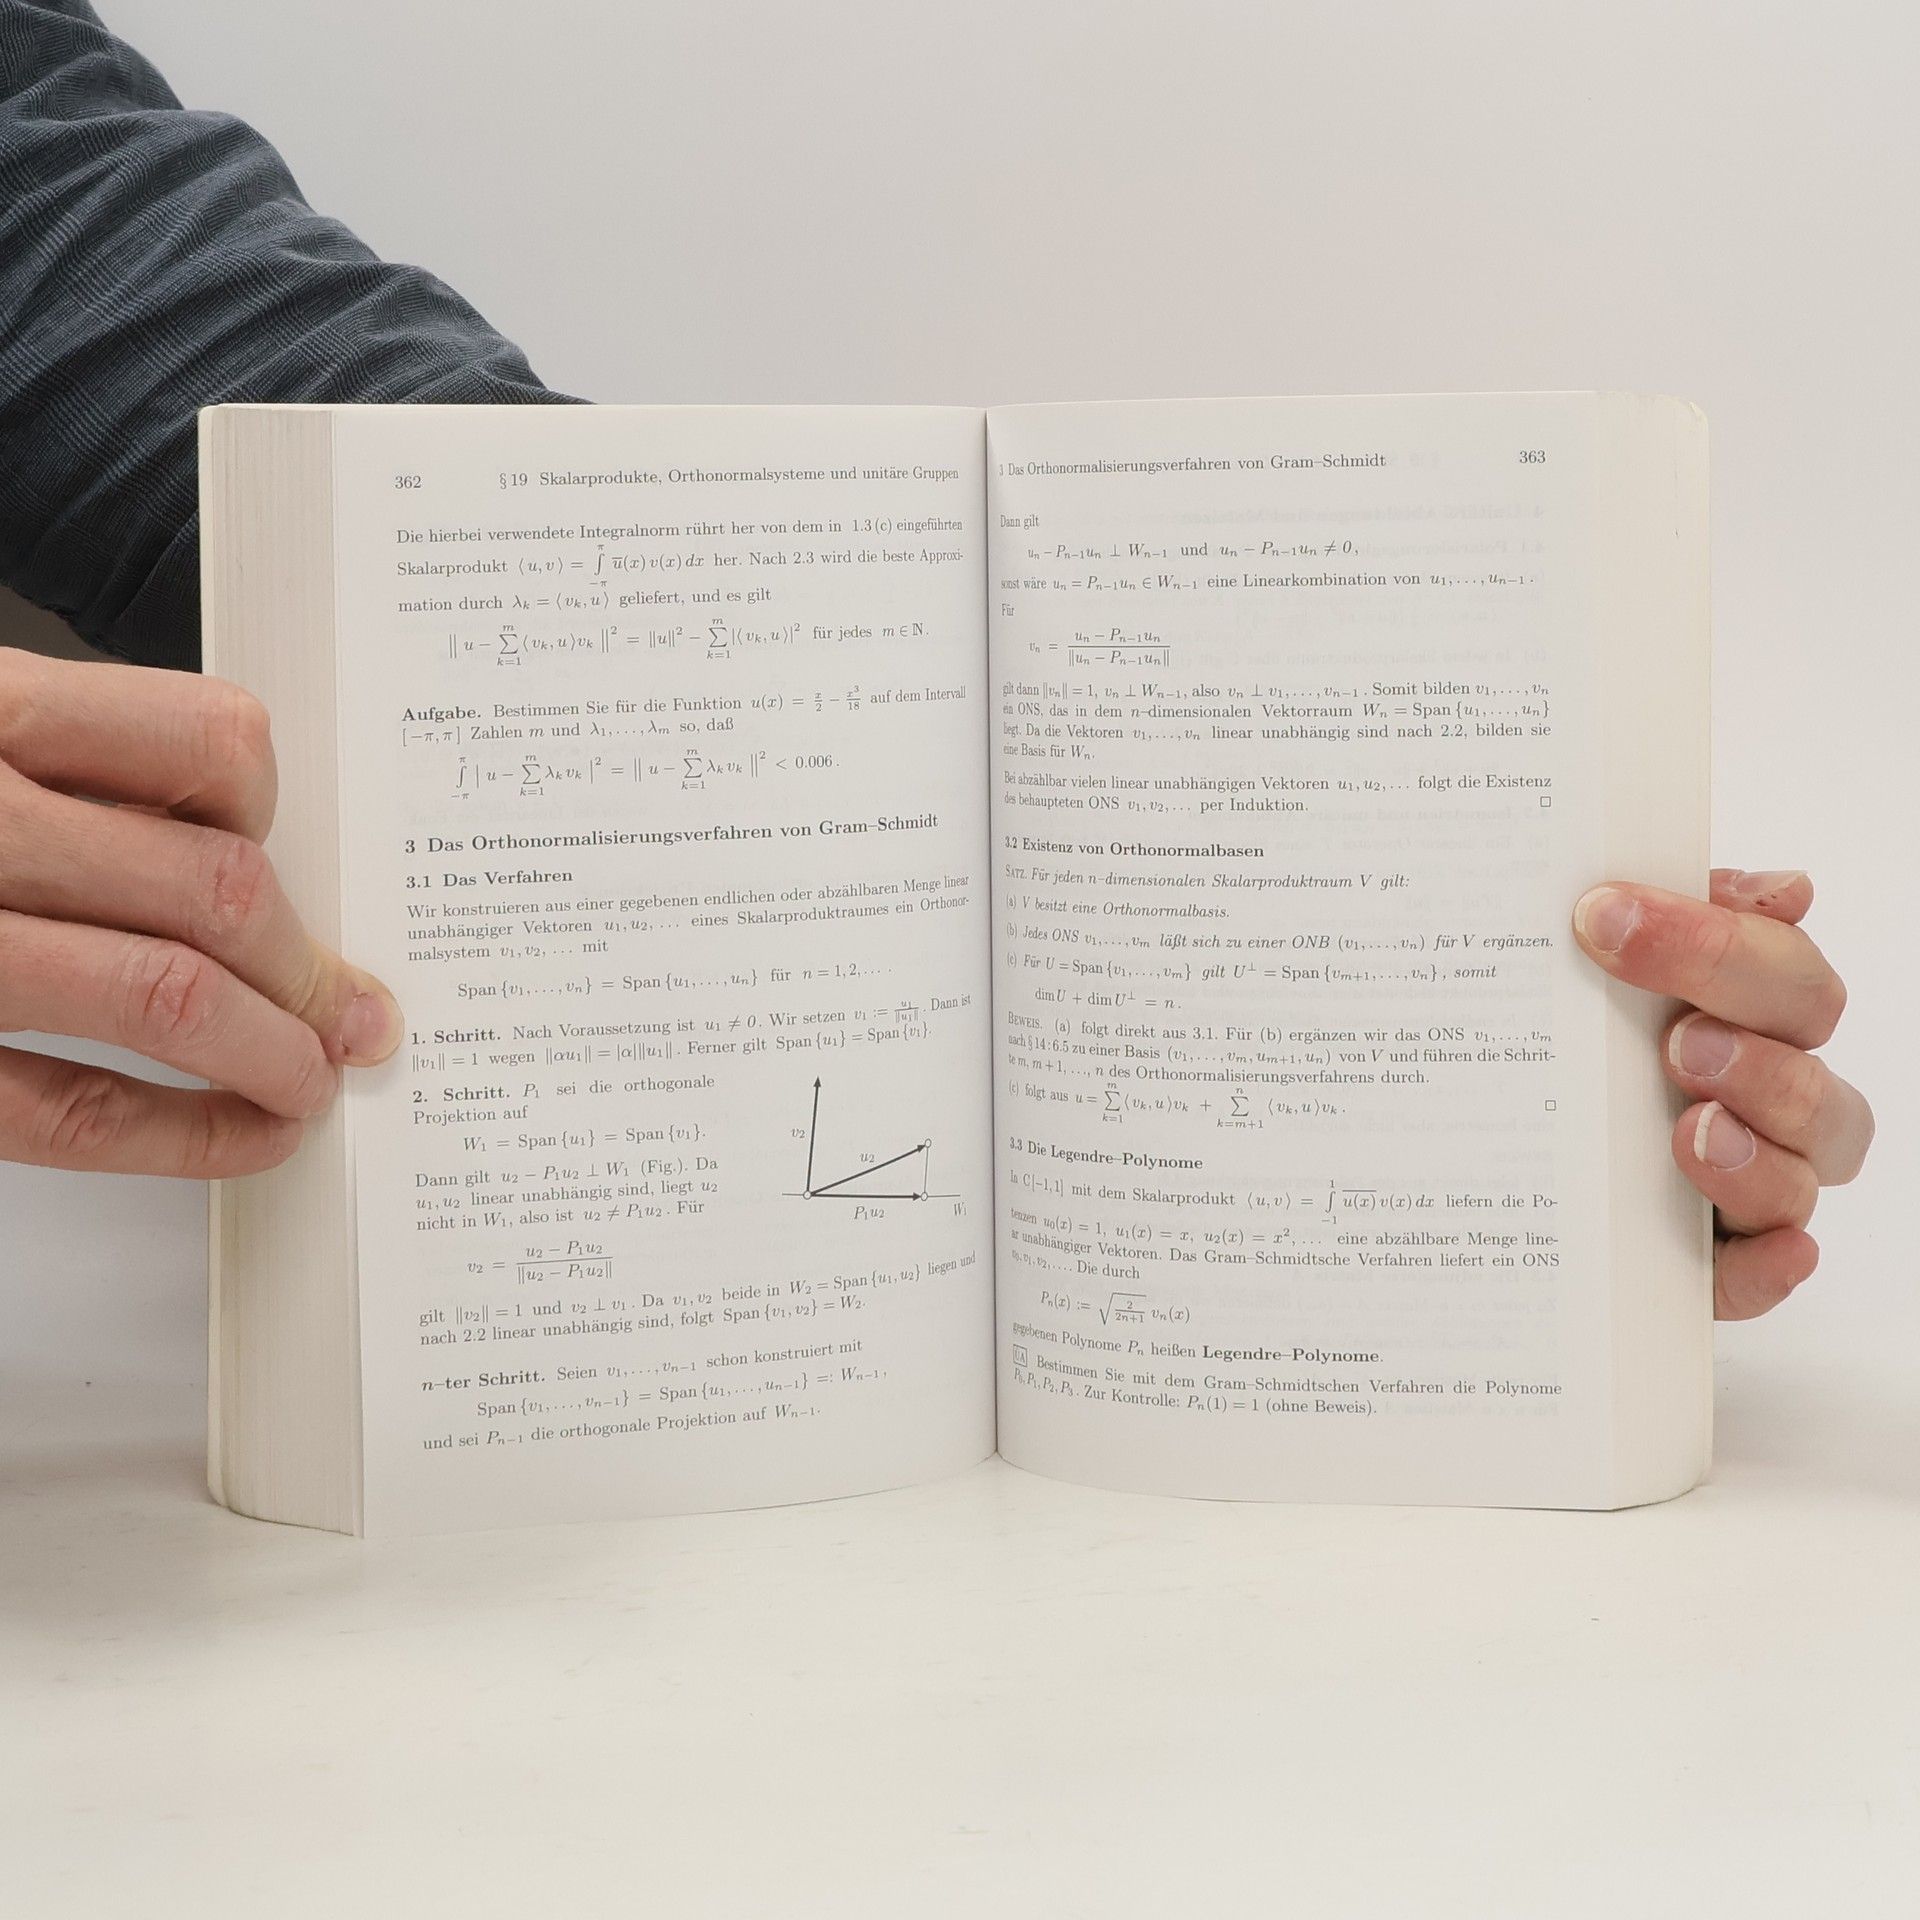 362 § 19 Skalarprodukte, Orthonormalsysteme und unitäre Gruppen
Die hierbei verwendete Integralnorm rührt her von dem in 1.3 (c) eingeführten
Skalarprodukt ⟨u, v⟩ = ∫_{−π}^{π} u̅(x) v(x) dx her. Nach 2.3 wird die beste Approxi-
mation durch λ_k = ⟨v_k, u⟩ geliefert, und es gilt
‖ u − ∑_{k=1}^{m} ⟨v_k, u⟩v_k ‖² = ‖u‖² − ∑_{k=1}^{m} |⟨v_k, u⟩|² für jedes m ∈ ℕ.
Aufgabe. Bestimmen Sie für die Funktion u(x) = x/2 − x³/18 auf dem Intervall
[−π, π] Zahlen m und λ₁, . . . , λ_m so, daß
∫_{−π}^{π} | u − ∑_{k=1}^{m} λ_k v_k |² = ‖ u − ∑_{k=1}^{m} λ_k v_k ‖² < 0.006 .
3 Das Orthonormalisierungsverfahren von Gram–Schmidt
3.1 Das Verfahren
Wir konstruieren aus einer gegebenen endlichen oder abzählbaren Menge linear
unabhängiger Vektoren u₁, u₂, . . . eines Skalarproduktraumes ein Orthonor-
malsystem v₁, v₂, . . . mit
Span {v₁, . . . , v_n} = Span {u₁, . . . , u_n} für n = 1, 2, . . . .
1. Schritt. Nach Voraussetzung ist u₁ ≠ 0. Wir setzen v₁ := u₁/‖u₁‖. Dann ist
‖v₁‖ = 1 wegen ‖αu₁‖ = |α|‖u₁‖. Ferner gilt Span {u₁} = Span {v₁}.
2. Schritt. P₁ sei die orthogonale
Projektion auf
W₁ = Span {u₁} = Span {v₁}.
Dann gilt u₂ − P₁u₂ ⊥ W₁ (Fig.). Da
u₁, u₂ linear unabhängig sind, liegt u₂
nicht in W₁, also ist u₂ ≠ P₁u₂. Für
v₂ = (u₂ − P₁u₂)/‖u₂ − P₁u₂‖
v₂
u₂
P₁u₂
W₁
gilt ‖v₂‖ = 1 und v₂ ⊥ v₁. Da v₁, v₂ beide in W₂ = Span {u₁, u₂} liegen und
nach 2.2 linear unabhängig sind, folgt Span {v₁, v₂} = W₂.
n–ter Schritt. Seien v₁, . . . , v_{n−1} schon konstruiert mit
Span {v₁, . . . , v_{n−1}} = Span {u₁, . . . , u_{n−1}} =: W_{n−1},
und sei P_{n−1} die orthogonale Projektion auf W_{n−1}.
3 Das Orthonormalisierungsverfahren von Gram–Schmidt 363
Dann gilt
u_n − P_{n−1}u_n ⊥ W_{n−1} und u_n − P_{n−1}u_n ≠ 0,
sonst wäre u_n = P_{n−1}u_n ∈ W_{n−1} eine Linearkombination von u₁, . . . , u_{n−1} .
Für
v_n = (u_n − P_{n−1}u_n)/‖u_n − P_{n−1}u_n‖
gilt dann ‖v_n‖ = 1, v_n ⊥ W_{n−1}, also v_n ⊥ v₁, . . . , v_{n−1} . Somit bilden v₁, . . . , v_n
ein ONS, das in dem n–dimensionalen Vektorraum W_n = Span {u₁, . . . , u_n}
liegt. Da die Vektoren v₁, . . . , v_n linear unabhängig sind nach 2.2, bilden sie
eine Basis für W_n.
Bei abzählbar vielen linear unabhängigen Vektoren u₁, u₂, . . . folgt die Existenz
des behaupteten ONS v₁, v₂, . . . per Induktion. □
3.2 Existenz von Orthonormalbasen
SATZ. Für jeden n–dimensionalen Skalarproduktraum V gilt:
(a) V besitzt eine Orthonormalbasis.
(b) Jedes ONS v₁, . . . , v_m läßt sich zu einer ONB (v₁, . . . , v_n) für V ergänzen.
(c) Für U = Span {v₁, . . . , v_m} gilt U^⊥ = Span {v_{m+1}, . . . , v_n}, somit
dim U + dim U^⊥ = n.
BEWEIS. (a) folgt direkt aus 3.1. Für (b) ergänzen wir das ONS v₁, . . . , v_m
nach § 14 : 6.5 zu einer Basis (v₁, . . . , v_m, u_{m+1}, u_n) von V und führen die Schrit-
te m, m + 1, . . . , n des Orthonormalisierungsverfahrens durch.
(c) folgt aus u = ∑_{k=1}^{m} ⟨v_k, u⟩v_k + ∑_{k=m+1}^{n} ⟨v_k, u⟩v_k . □
3.3 Die Legendre–Polynome
In C[−1, 1] mit dem Skalarprodukt ⟨u, v⟩ = ∫_{−1}^{1} u̅(̅x̅)̅ v(x) dx liefern die Po-
tenzen u₀(x) = 1, u₁(x) = x, u₂(x) = x², . . . eine abzählbare Menge line-
ar unabhängiger Vektoren. Das Gram–Schmidtsche Verfahren liefert ein ONS
v₀, v₁, v₂, . . . . Die durch
P_n(x) := √(2/(2n+1)) v_n(x)
gegebenen Polynome P_n heißen Legendre–Polynome.
ÜA Bestimmen Sie mit dem Gram–Schmidtschen Verfahren die Polynome
P₀, P₁, P₂, P₃. Zur Kontrolle: P_n(1) = 1 (ohne Beweis).